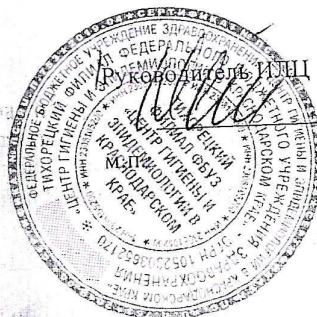 Руководитель ИЛЦ
М.П.
ФЕДЕРАЛЬНОЕ БЮДЖЕТНОЕ УЧРЕЖДЕНИЕ ЗДРАВООХРАНЕНИЯ
"ЦЕНТР ГИГИЕНЫ И ЭПИДЕМИОЛОГИИ В КРАСНОДАРСКОМ КРАЕ"
ТИХОРЕЦКИЙ ФИЛИАЛ ФЕДЕРАЛЬНОГО БЮДЖЕТНОГО УЧРЕЖДЕНИЯ ЗДРАВООХРАНЕНИЯ
"ЦЕНТР ГИГИЕНЫ И ЭПИДЕМИОЛОГИИ В КРАСНОДАРСКОМ КРАЕ"
ТИХОРЕЦКИЙ
ФИЛИАЛ ФБУЗ
"ЦЕНТР ГИГИЕНЫ И
ЭПИДЕМИОЛОГИИ В
КРАСНОДАРСКОМ
КРАЕ"